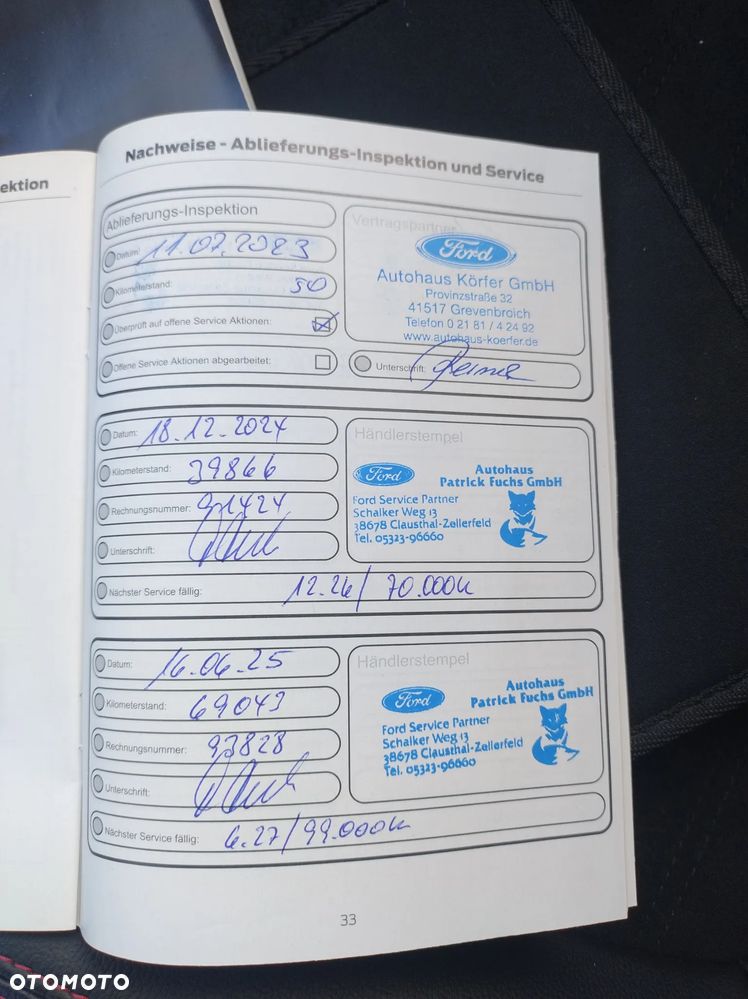 ektion
Nachweise - Ablieferungs-Inspektion und Service
Ablieferungs-Inspektion
Datum: 11.07.2023
Kilometerstand: 50
Überprüft auf offene Service Aktionen:
Offene Service Aktionen abgearbeitet:
Vertragspartner
Ford
Autohaus Körfer GmbH
Provinzstraße 32
41517 Grevenbroich
Telefon 0 21 81 / 4 24 92
www.autohaus-koerfer.de
Unterschrift:
Datum: 18.12.2024
Kilometerstand: 39866
Rechnungsnummer: 91424
Unterschrift:
Händlerstempel
Ford
Autohaus
Patrick Fuchs GmbH
Ford Service Partner
Schalker Weg 13
38678 Clausthal-Zellerfeld
Tel. 05323-96660
Nächster Service fällig: 12.26/ 70.000k
Datum: 16.06.25
Kilometerstand: 69043
Rechnungsnummer: 93828
Unterschrift:
Händlerstempel
Ford
Autohaus
Patrick Fuchs GmbH
Ford Service Partner
Schalker Weg 13
38678 Clausthal-Zellerfeld
Tel. 05323-96660
Nächster Service fällig: 6.27/99.000k
33
OTOMOTO